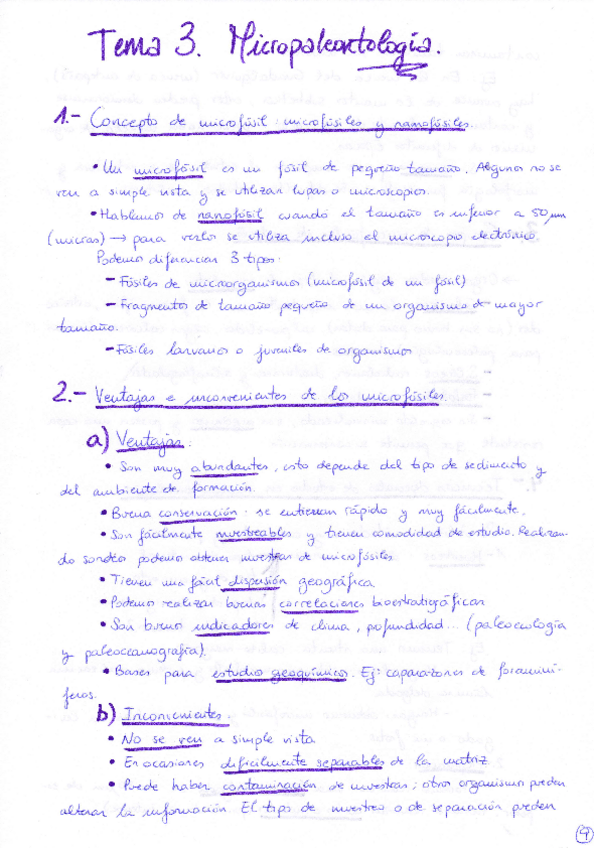 Tema 3. Micropaleontología.
1.- Concepto de microfósil: microfósiles y nanofósiles.
• Un microfósil es un fósil de pequeño tamaño. Algunos no se
ven a simple vista y se utilizan lupas o microscopios.
• Hablamos de nanofósil cuando el tamaño es inferior a 50 µm
(micras) → para verlos se utiliza incluso el microscopio electrónico.
Podemos diferenciar 3 tipos:
- Fósiles de microorganismos (microfósil de un fósil)
- Fragmentos de tamaño pequeño de un organismo de mayor
tamaño.
- Fósiles larvarios o juveniles de organismos
2.- Ventajas e inconvenientes de los microfósiles.
a) Ventajas:
• Son muy abundantes, esto depende del tipo de sedimento y
del ambiente de formación.
• Buena conservación: se entierran rápido y muy fácilmente.
• Son fácilmente muestreables y tienen comodidad de estudio. Realizan-
do sondeos podemos obtener muestras de microfósiles
• Tienen una fácil dispersión geográfica
• Podemos realizar buenas correlaciones bioestratigráficas
• Son buenos indicadores de clima, profundidad... (paleoecología
y paleoceanografía).
• Bases para estudio geoquímicos. Ej: caparazones de foraminí-
feros.
b) Inconvenientes.
• No se ven a simple vista
• En ocasiones dificilmente separables de la matriz
• Puede haber contaminación de muestras; otros organismos pueden
alterar la información. El tipo de muestreo o de separación pueden
4